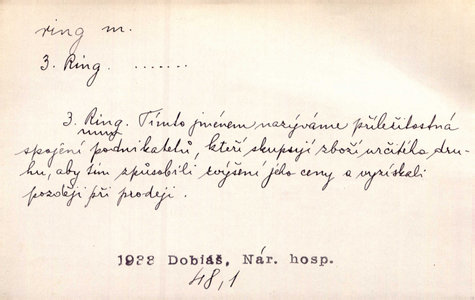 ring m.
3. Ring. .......
3. Ring. Tímto jménem nazýváme příležitostná
spojení podnikatelů, kteří skupují zboží určitého dru-
hu, aby tím způsobili zvýšení jeho ceny a vyzískali
později při prodeji.
1938 Dobiáš, Nár. hosp.
48,1